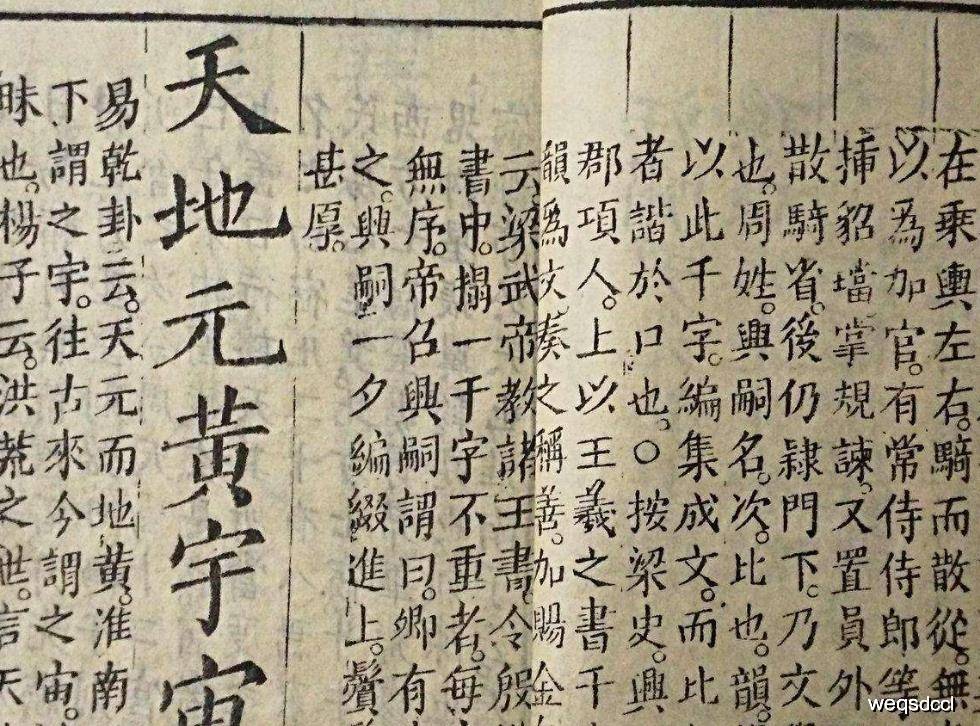 在乗輿左右。騎而散從。無
以為加官。有常侍侍郎等
挿貂璫掌規諫。又置員外
散騎省。後仍隷門下。乃文
也。周姓。興嗣名。次。比也。韻。
以此千字。編集成文。而比
者諧於口也。〇按梁史。興
郡項人。上以王羲之書千
韻為文奏之稱善。加賜金
云梁武帝教諸王書。令殷
書中。搨一千字不重者。每
無序。帝召興嗣謂曰。卿有
之。興嗣一夕編綴進上。鬢
甚厚。
天地元黃宇宙
易乾卦云。天元而地黃。淮南
下謂之宇。往古來今謂之宙。
昧也。楊子云。洪荒之世。言天
weqsdccl